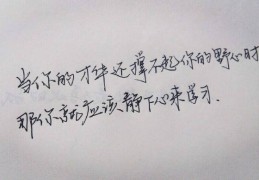 当你的才华还撑不起你的野心时
那你就应该静下心来学习.